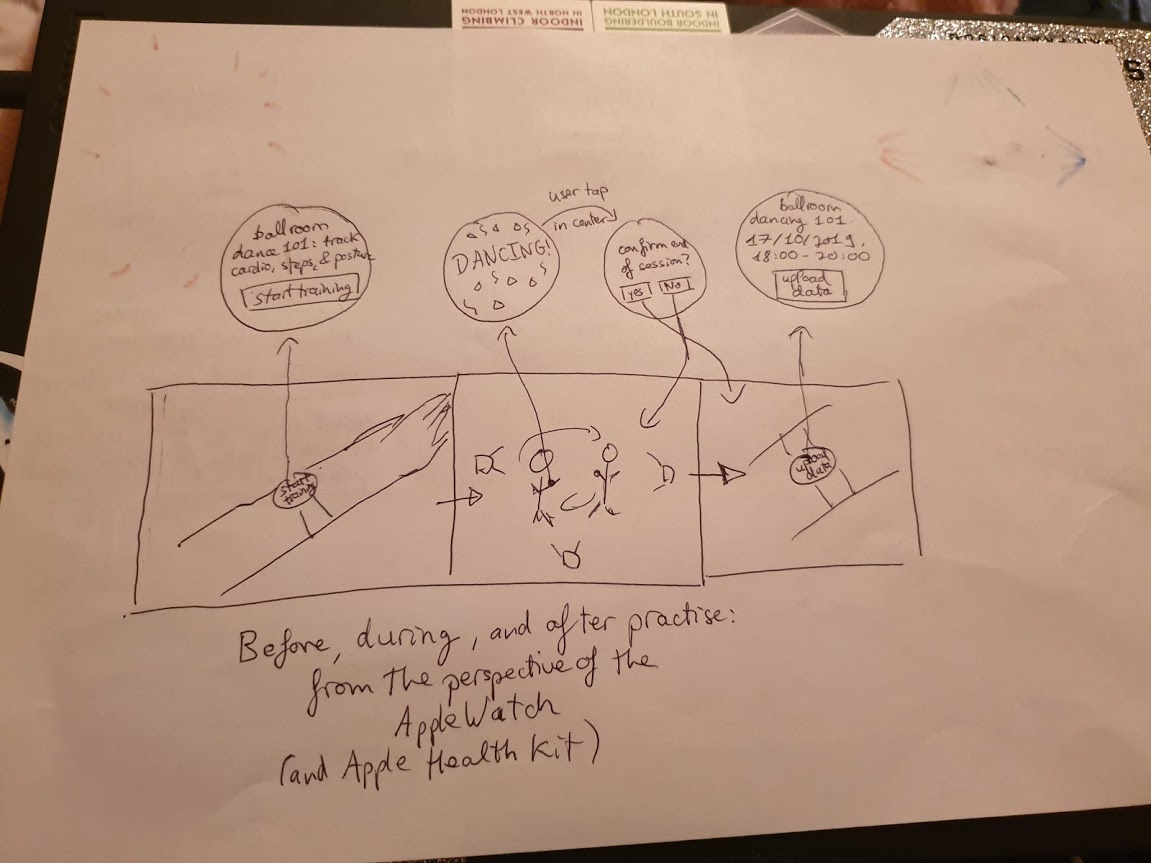 INDOOR CLIMBING
IN NORTH WEST LONDON
INDOOR BOULDERING
IN SOUTH LONDON
S
ballroom
dance 101: track
cardio, steps, & posture
start training
DANCING!
user tap
in center
confirm end
of session?
yes
No
ballroom
dancing 101.
17/10/2019,
18:00 - 20:00
upload
data
start
training
upload
data
Before, during, and after practise:
from the perspective of the
Apple Watch
(and Apple Health Kit)